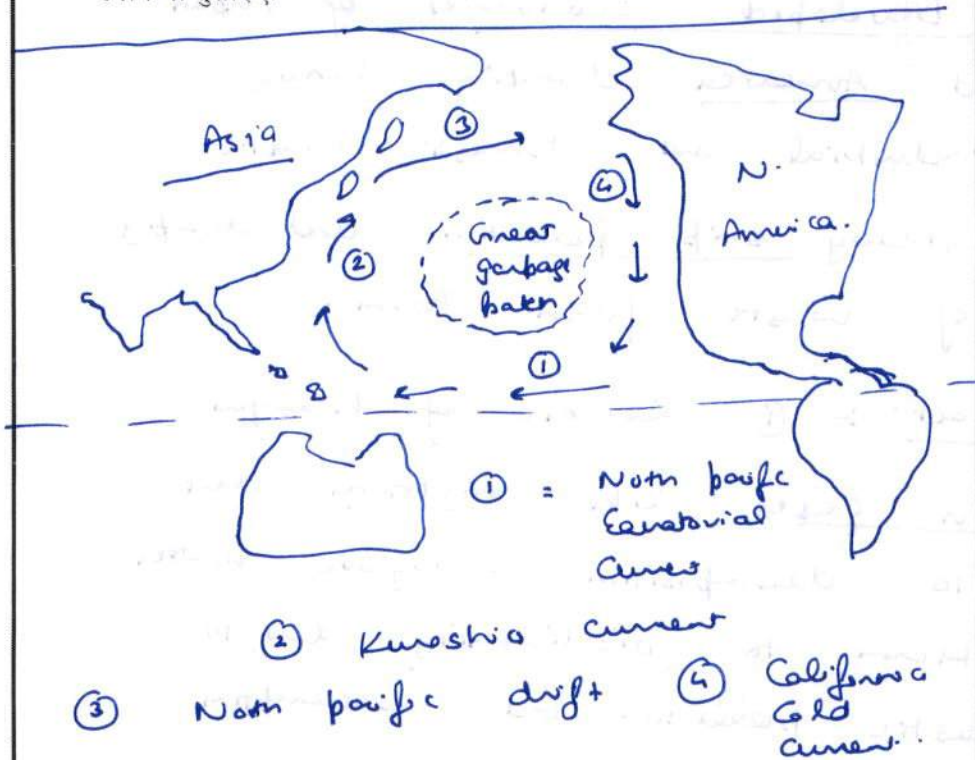 Asia
③
④
N.
America.
Great
garbage
patch
②
①
① = North pacific
Equatorial
Current
② Kuroshio current
③ North pacific drift
④ California
Cold
Current.